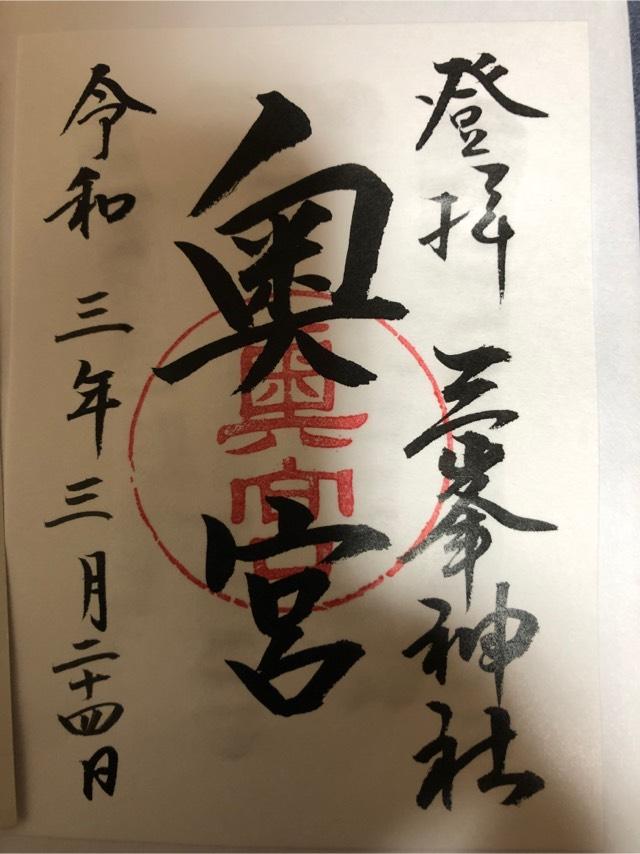 登拝 三峯神社
奥宮
奥宮
令和三年三月二十四日